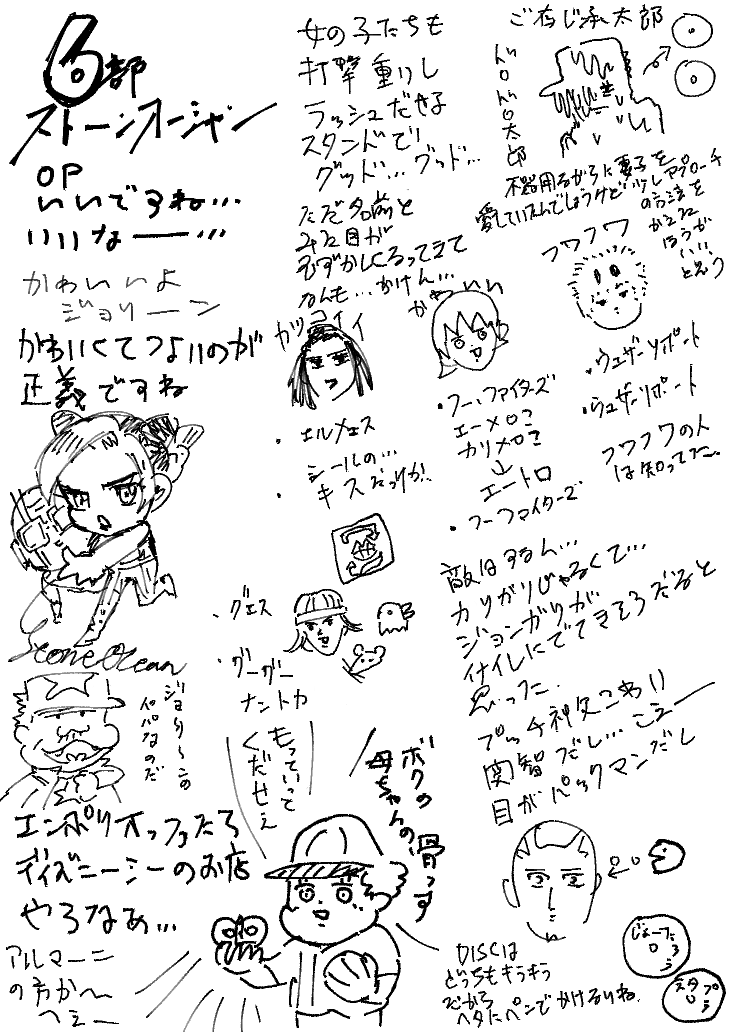 6部
ストーンオーシャン
OP
いいですね…
いいなー…
かわいいよ
ジョリーン
かわいくてつよいのが
正義ですね
Stone Ocean
ジョリーンの
パパなのだ
エンポリオっつったら
ディズニーシーのお店
やろなぁ…
アルマーニ
の方か〜
へぇー
女の子たちも
打撃重りし
ラッシュだきる
スタンドで!
グッド…グッド…
ただ名前と
みた目が
むずかしくなってきて
なんも…かけん…
カッコイイ
・エルメェス
・シールの…
キスだっけか!
・グェス
・グーグー
ナントカ
もっていって
くだせぇ
ボクの
母ちゃんの
骨っす
ご存じ承太郎
ドロドロ太郎
不器用ながらに妻子を
愛していたんでしょうけど
アプローチ
の方法を
かえた
ほうが
いい
と思う
かわいい
・フー・ファイターズ
エーメロ?
カリメロ?
↓
エートロ
・フーファイターズ
フワフワ
・ウェザーリポート
・ウェザーリポート
フワフワの人
は知ってた〜
敵はするん…
カリがりじゃなくて…
ジョンガリが
イナイレにでてきそうだなと
思った
プッチ神父こわい
関智だし…こえー
目がパックマンだし
DISCは
どっちもキラキラ
だから
ヘタにペンでかけないね
じょーたろう
スタプラ